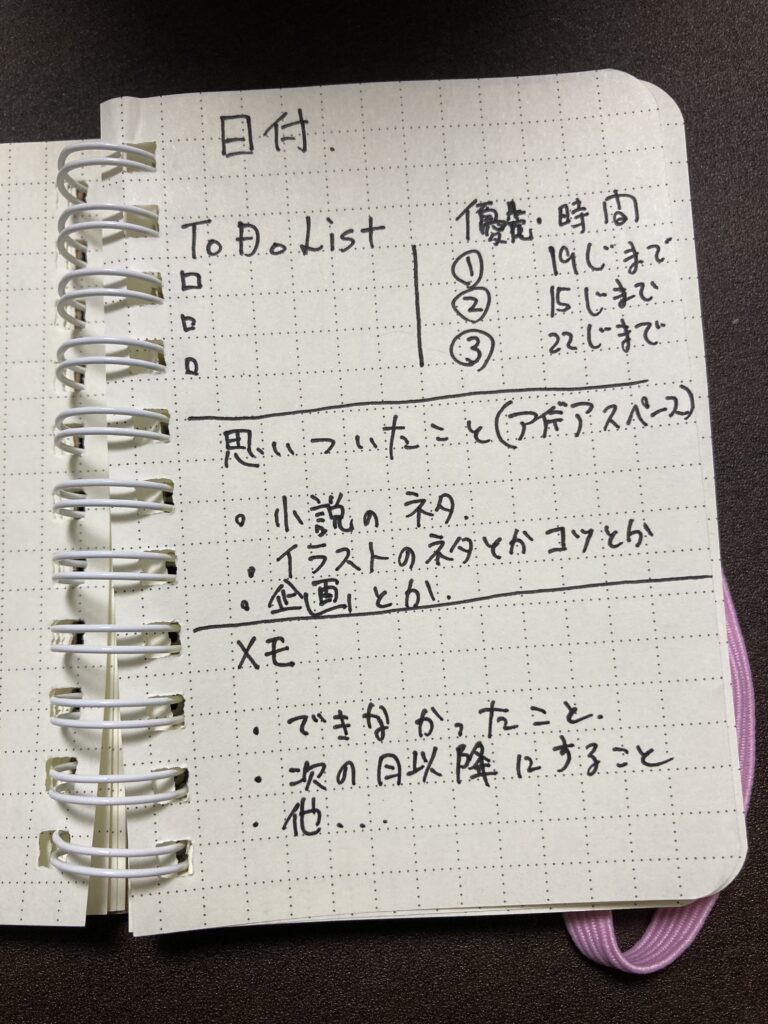 日付.
ToDoList
□
□
□
優先・時間
① 19じまで
② 15じまで
③ 22じまで
思いついたこと(アイデアスペース)
・小説のネタ.
・イラストのネタとかコツとか
・企画とか.
メモ
・できなかったこと.
・次の日以降にすること
・他...